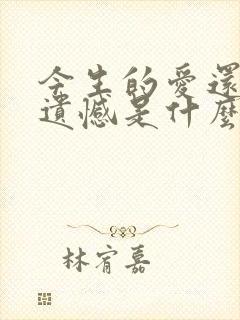 今生的愛還
遺憾是什麼
林宥嘉